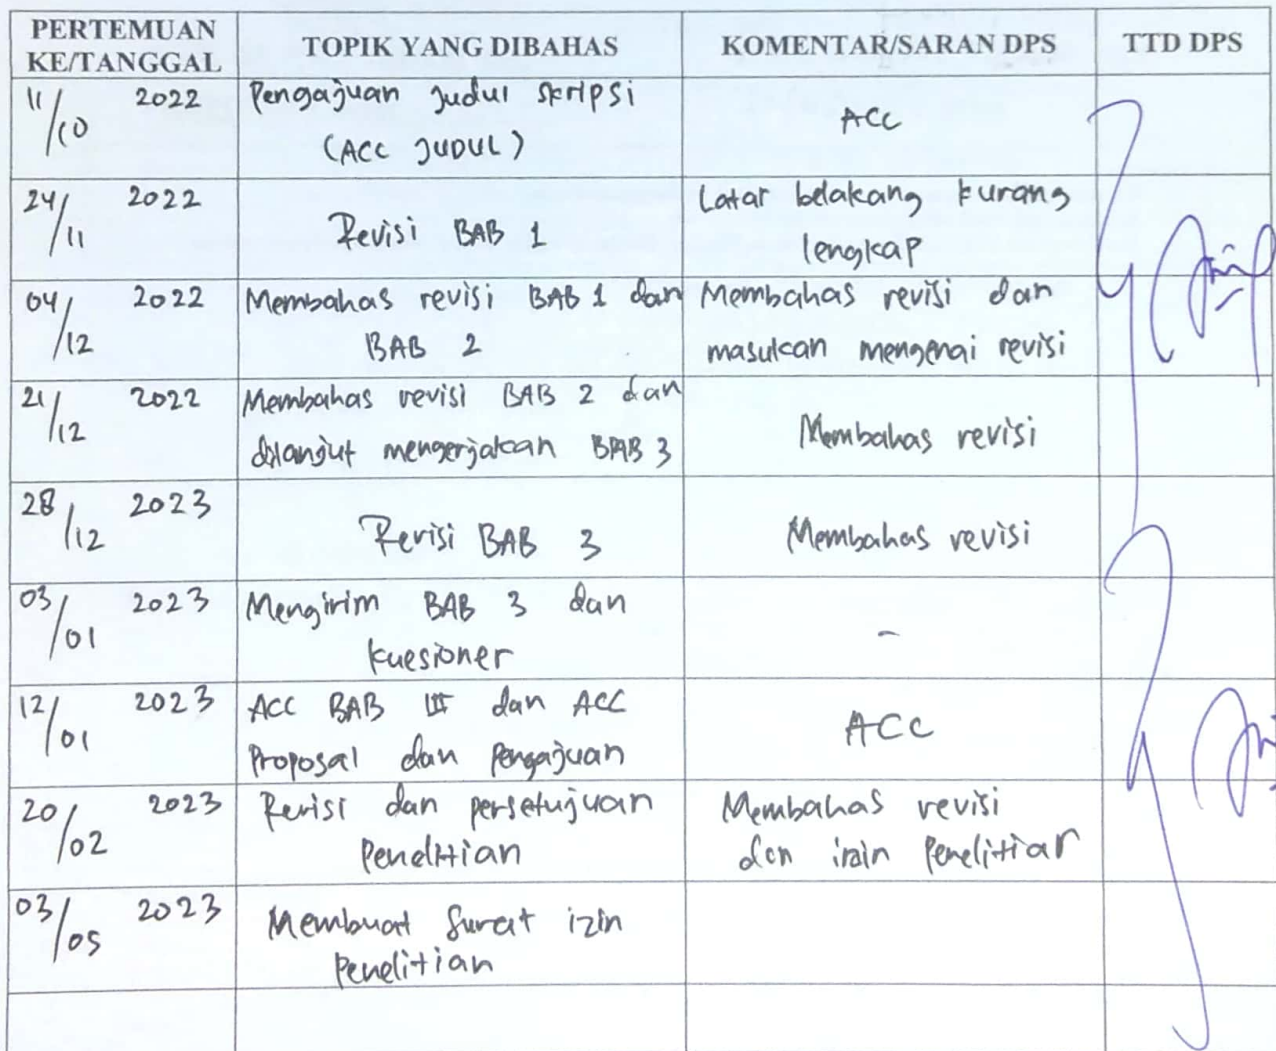 PERTEMUAN KE/TANGGAL TOPIK YANG DIBAHAS KOMENTAR/SARAN DPS TTD DPS
11/10 2022 Pengajuan Judul Skripsi
(ACC JUDUL)
ACC
24/11 2022 Revisi BAB 1
Latar belakang kurang
lengkap
04/12 2022 Membahas revisi BAB 1 dan
BAB 2
Membahas revisi dan
masukan mengenai revisi
21/12 2022 Membahas revisi BAB 2 dan
dilanjut mengerjakan BAB 3
Membahas revisi
28/12 2023 Revisi BAB 3
Membahas revisi
03/01 2023 Mengirim BAB 3 dan
kuesioner
-
12/01 2023 ACC BAB III dan ACC
Proposal dan Pengajuan
ACC
20/02 2023 Revisi dan persetujuan
Penelitian
Membahas revisi
dan izin Penelitian
03/05 2023 Membuat Surat izin
Penelitian